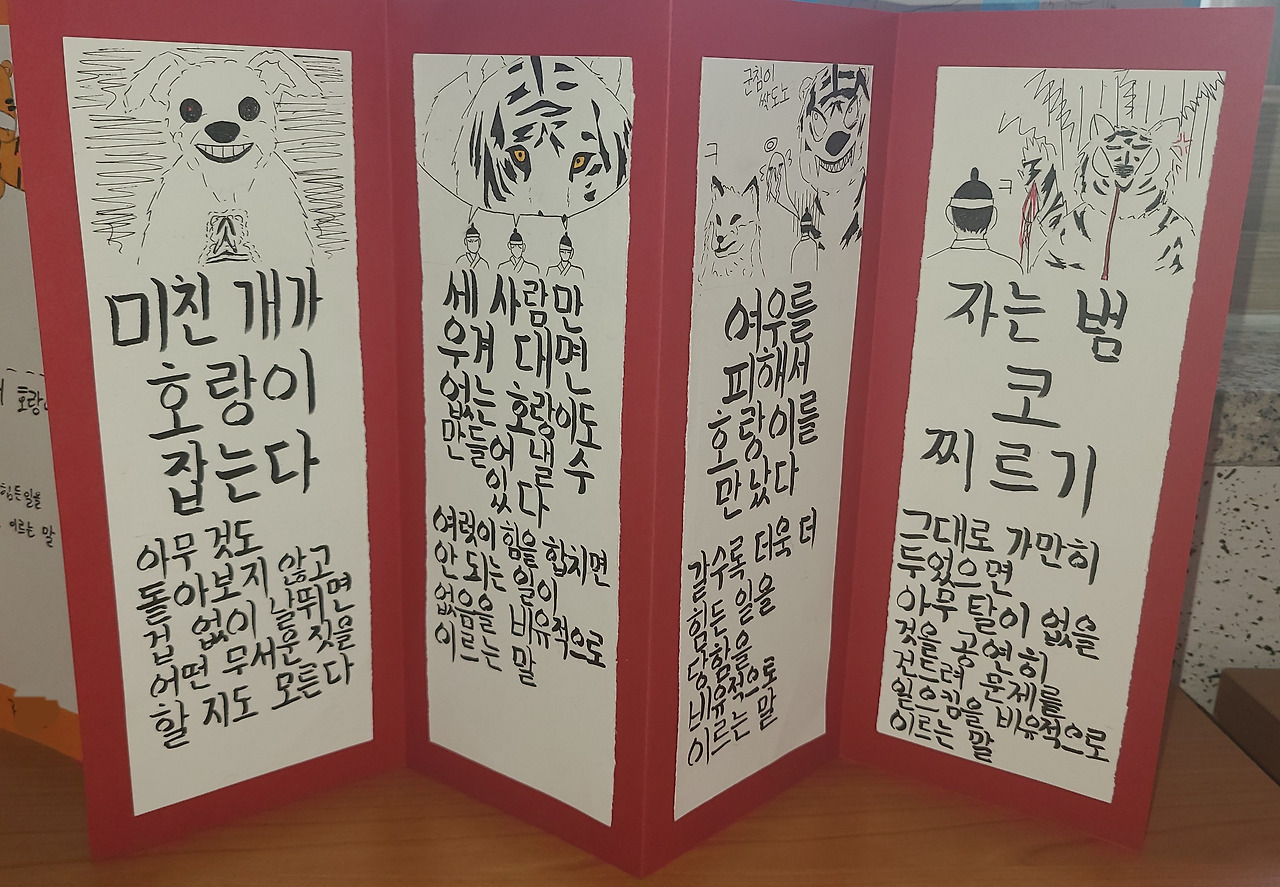 호랑
힘든일을
이르는 말
미친 개가
호랑이
잡는다
아무 것도
돌아보지 않고
겁 없이 날뛰면
어떤 무서운 짓을
할 지도 모른다
세 사람만
우겨 대면
없는 호랑이도
만들어 낼 수
있다
여럿이 힘을 합치면
안 되는 일이
없음을 비유적으로
이르는 말
군침이
싹도노
ㅋ
여우를
피해서
호랑이를
만났다
갈수록 더욱 더
힘든 일을
당함을
비유적으로
이르는 말
ㅋ
자는 범
코
찌르기
그대로 가만히
두었으면
아무 탈이 없을
것을 공연히
건드려 문제를
일으킴을 비유적으로
이르는 말